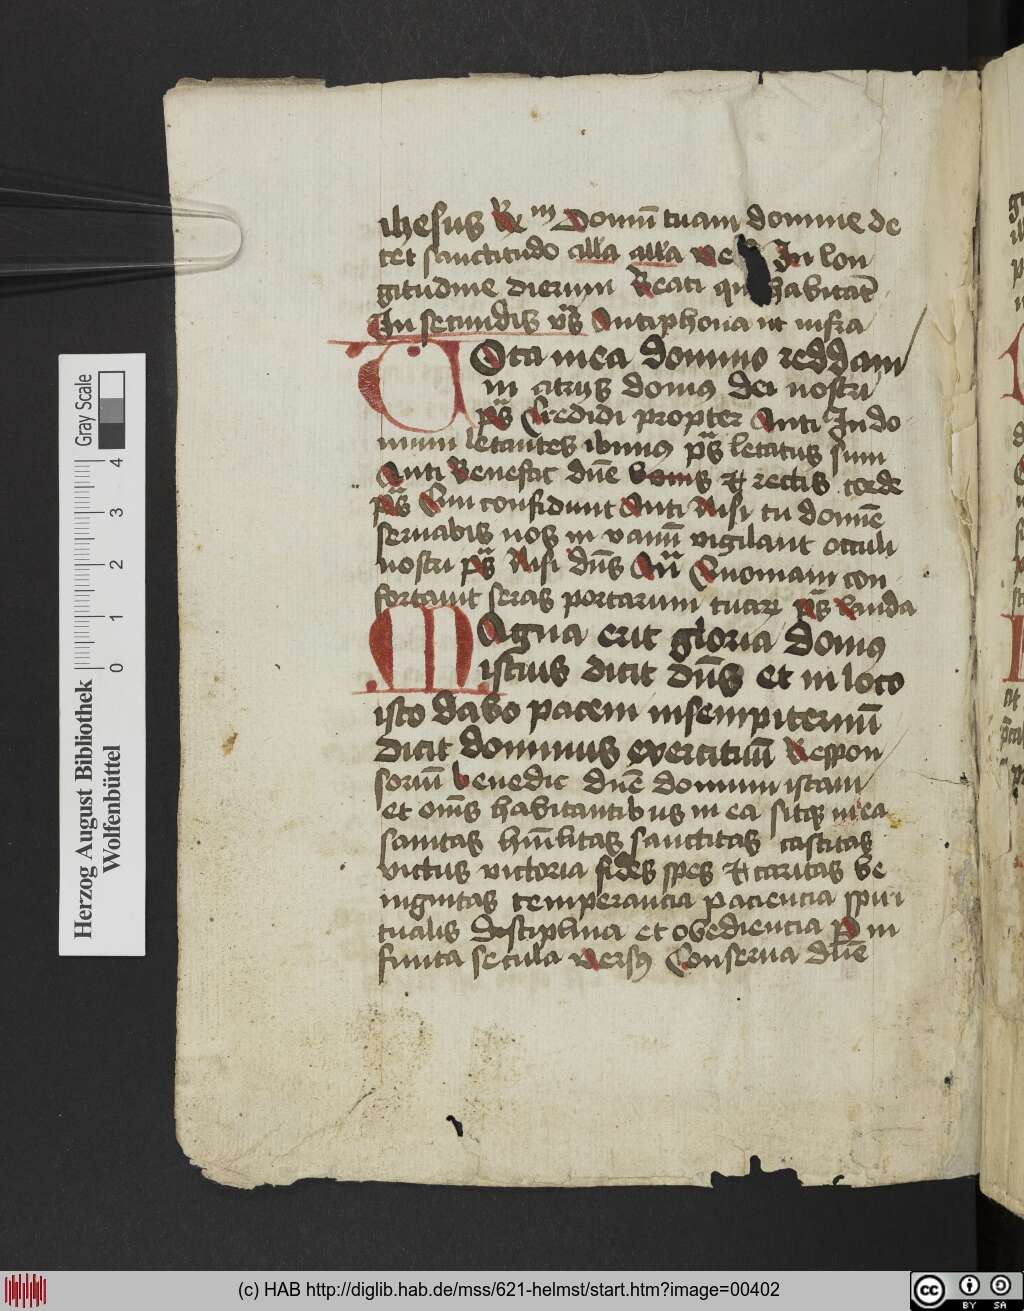 ihesus Rm Domū tuam domine de
cet sanctitudo alla alla ve In lon
gitudine dierum Beati qui habitāt
In secundis vs̄ Antiphona ut infra
VOta mea domino reddam
in atrijs domus dei nostri
ps̄ Credidi propter Anti In do
mum letantes ibimus ps̄ letatus sum
Anti Benefac dn̄e bonis et rectis corde
ps̄ Qui confidunt Anti Nisi tu domīe
seruabis nos in vanū vigilant occuli
nostri ps̄ Nisi dn̄s An̄ Quoniam con
fortauit seras portarum tuarum ps̄ lauda
MAgna erit gloria domus
istius dicit dn̄s et in loco
isto dabo pacem insempiternū
dicit dominus exercituū Respon
soriū benedic dn̄e domum istam
et om̄s habitantibus in ea sitque in ea
sanitas hūilitas sanctitas castitas
virtus victoria fides spes et caritas be
nignitas temperancia paciencia spiri
tualis disciplina et obediencia P in
finita secula versus Conserua dn̄e
Herzog August Bibliothek
Wolfenbüttel
0 1 2 3 4
Gray Scale
(c) HAB http://diglib.hab.de/mss/621-helmst/start.htm?image=00402
cc BY SA